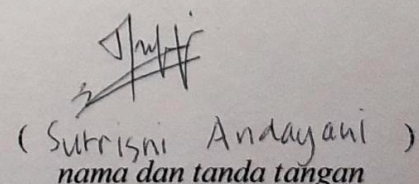 ( Sutrisni Andayani )
nama dan tanda tangan